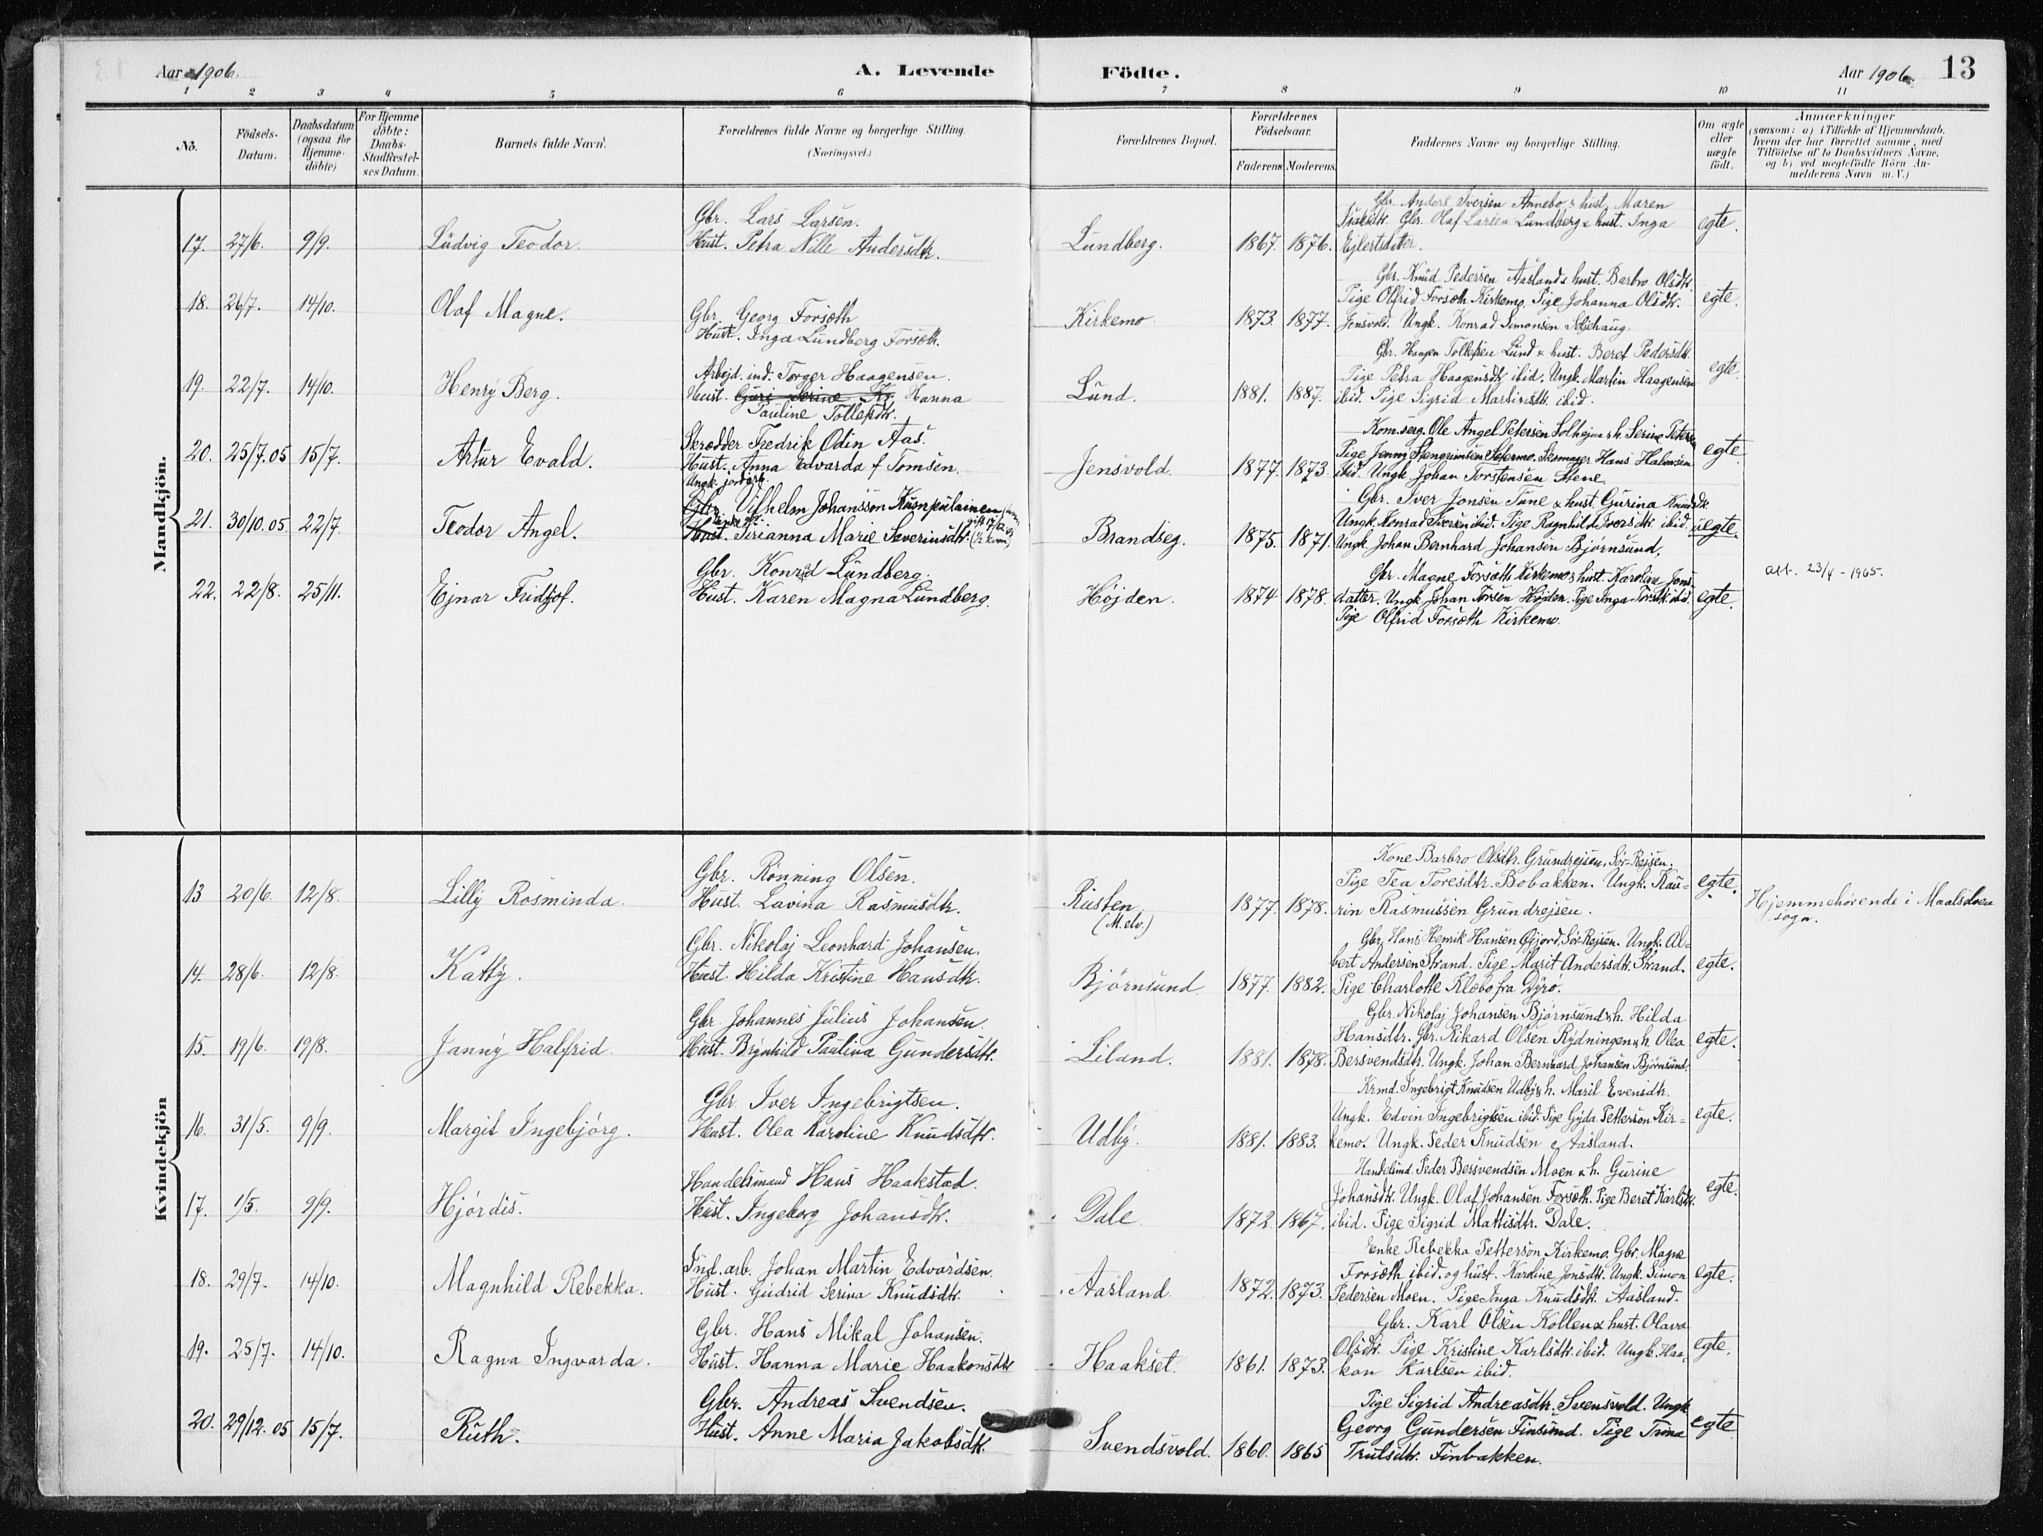 Aar 1906. A. Levende Födte. Aar 1906. 13
1 2 3 4 5 6 7 8 9 10 11
No. Födsels-Datum. Daabsdatum (ogsaa for Hjemme-döbte) For Hjemme döbte: Daabs-Stadfæstel-ses Datum. Barnets fulde Navn. Forældrenes fulde Navne og borgerlige Stilling. (Næringsvei.) Forældrenes Bopæl. Forældrenes Födselsaar. Faderens Moderens. Faddernes Navne og borgerlige Stilling. Om ægte eller uægte födt. Anmærkninger (saasom: a) i Tilfælde af Hjemmedaab, hvem der har forrettet samme, med Tilföielse af to Daabsvidners Navne, og b) ved uægtefödte Börn An-melderens Navn m. V.)
Mandkjön.
Gbr. Lars Larsen. Gbr. Anders Iversen Annebo & hust. Maren
Isaksdtr. Gbr. Olaf Larsen Lundberg & hust. Inga
17. 27/6. 9/9. Ludvig Teodor. Hust. Petra Nille Andersdtr. Lundberg. 1867. 1876. Ejlertsdatter. egte.
Gbr. Knud Pedersen Aasland & hust. Barbro Olsdtr.
18. 26/7. 14/10. Olaf Magne. Gbr. Georg Forsæth Pige Olfrid Forsæth Kirkemo. Pige Johanna Olsdtr. egte.
Hust. Inga Lundberg Forsæth. Kirkemo 1873. 1877. Jensvold. Ungk. Konrad Simonsen
Gbr. Haagen Tollefsen Lund & hust. Beret Pedersdtr.
Arbejd. ind. Torger Haagensen. Pige Petra Haagensdtr. ibid. Ungk. Martin Haagensen egte.
19. 22/7. 14/10. Henry Berg. Hust. Guri Serine Kr. Hanna Lund. 1881. 1887. ibid. Pige Sigrid Martinsdtr. ibid.
Pauline Tollefsdtr.
Skrædder Fredrik Odin Aas. Kom.serg. Ole Angel Petersen Solhejm & h. Serine Petersen
20. 25/7.05 15/7. Artur Evald. Hust. Anna Edvarda f. Tomsen. Jensvold. 1877. 1873. Pige Jenny Stengrimsen Sætermo. Skomager Hans Halvorsen egte.
ibid. Ungk. Johan Torstensen Stene.
Ungk. jordarb.
Gbr. Vilhelm Johansson Kumpulainen Gbr. Iver Jonsen Tune & hust. Gurina Knudsdtr.
21. 30/10.05. 22/7. Teodor Angel. Hust. Sirianna Marie Severinsdtr. Brandseg. 1875. 1871. Ungk. Konrad Iversen ibid. Pige Ragnhild Iversdtr. ibid. uegte.
Ungk. Johan Bernhard Johansen Bjørnsund.
Gbr. Konrad Lundberg. Gbr. Magne Forsæth Kirkemo & hust. Karoline Jons att. 23/4-1965.
22. 22/8. 25/11. Ejnar Fridtjof. Hust. Karen Magna Lundberg. Højden. 1874 1878. datter. Ungk. Johan Torsen Højden. Pige Inga Torsdtr. ibid. egte.
Pige Olfrid Forsæth Kirkemo.
Kvindekjön
Gbr. Rønning Olsen. Kone Barbro Olsdtr. Grundrejsen, Sør-Rejsen.
13 20/6. 12/8. Lilly Rosminda. Hust. Lavina Rasmusdtr. Rusten (M.elv.) 1877. 1878. Pige Tea Toresdtr. Bobakken. Ungk. Kau- egte. Hjemmehørende i Maalselven
rin Rasmussen Grundrejsen. sogn.
Gbr. Nikolaj Leonhard Johansen. Gbr. Hans Henrik Hansen Øjjord, Sør-Rejsen. Ungk. Al-
14. 28/6. 12/8. Katty. Hust. Hilda Kristine Hansdtr. bert Andersen Strand. Pige Marit Andersdtr. Strand. egte.
Bjørnsund. 1877. 1882. Pige Charlotte Klæbo fra Dyrø.
Gbr. Johannes Julius Johansen. Gbr. Nikolaj Johansen Bjørnsund & h. Hilda
15. 19/6. 19/8. Janny Halfrid. Hust. Brynhild Paulina Gundersdtr. Hansdtr. Gbr. Rikard Olsen Rydningen & h. Olea egte.
Liland. 1881. 1878. Bersvendsdtr. Ungk. Johan Bernhard Johansen Bjørnsund.
Gbr. Iver Ingebrigtsen. Krmd. Ingebrigt Knudsen Udby & h. Marit Evensdtr.
16. 31/5. 9/9. Margit Ingebjørg. Hust. Olea Karoline Knudsdtr. Ungk. Edvin Ingebrigtsen ibid. Pige Gyda Petterson Kir- egte.
Udby. 1881. 1883. kemo. Ungk. Peder Knudsen Aasland.
Handelsmand Hans Haakstad. Handelsmd. Peder Bersvendsen Moen & h. Gurine
17. 1/5. 9/9. Hjørdis. Hust. Ingeborg Johansdtr. Johansdtr. Ungk. Olaf Johansen Forsæth. Pige Beret Karlsdtr. egte.
Dale. 1872. 1867. ibid. Pige Sigrid Mattisdtr. Dale.
Ind. arb. Johan Martin Edvardsen. Enke Rebekka Petterson, Kirkemo. Gbr. Magne
18. 29/7. 14/10. Magnhild Rebekka. Hust. Gudrid Serina Knudsdtr. Forsæth ibid. og hust. Karoline Jonsdtr. Ungk. Simon egte.
Aasland. 1872. 1873. Pedersen Moen. Pige Inga Knudsdtr. Aasland.
Gbr. Hans Mikal Johansen. Gbr. Karl Olsen Kollen & hust. Olava
19. 25/7. 14/10. Ragna Ingvarda. Hust. Hanna Marie Haakonsdtr. Haakset. 1861. 1873. Olsdtr. Pige Kristine Karlsdtr. ibid. Ungk. Haa- egte.
kon Karlsen ibid.
Gbr. Andreas Svendsen. Pige Sigrid Andreasdtr. Svensvold. Ungk.
20. 29/12.05 15/7. Ruth. Hust. Anne Maria Jakobsdtr. Georg Gundersen Finsund. Pige Trina egte.
Svendsvold. 1860. 1865 Trulsdtr. Finbakken.